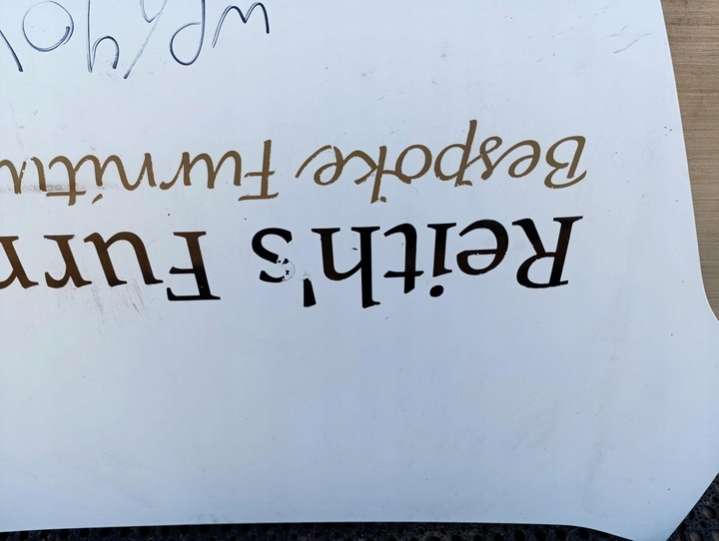 Reith's Furn
Bespoke Furnitu